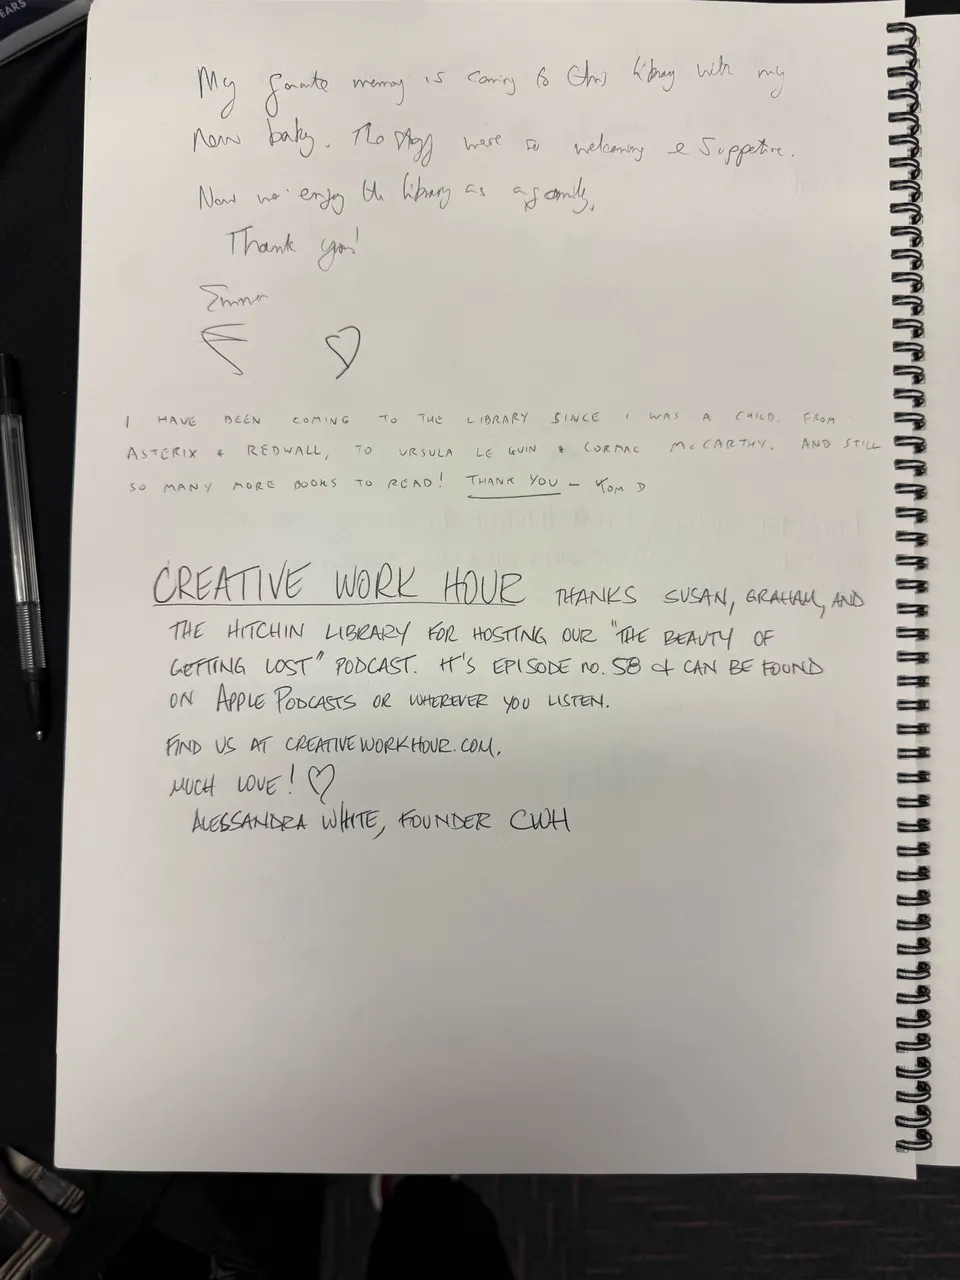 EARS
My favourite memory is coming to this library with my
new baby. The staff were so welcoming & supportive.
Now we enjoy the library as a family.
Thank you!
Emma
I HAVE BEEN COMING TO THE LIBRARY SINCE I WAS A CHILD. FROM
ASTERIX & REDWALL, TO URSULA LE GUIN & CORMAC McCARTHY. AND STILL
SO MANY MORE BOOKS TO READ! THANK YOU – TOM D
CREATIVE WORK HOUR THANKS SUSAN, GRAHAM, AND
THE HITCHIN LIBRARY FOR HOSTING OUR "THE BEAUTY OF
GETTING LOST" PODCAST. IT'S EPISODE NO. 58 & CAN BE FOUND
ON APPLE PODCASTS OR WHEREVER YOU LISTEN.
FIND US AT CREATIVEWORKHOUR.COM.
MUCH LOVE! ♡
ALESSANDRA WHITE, FOUNDER CWH